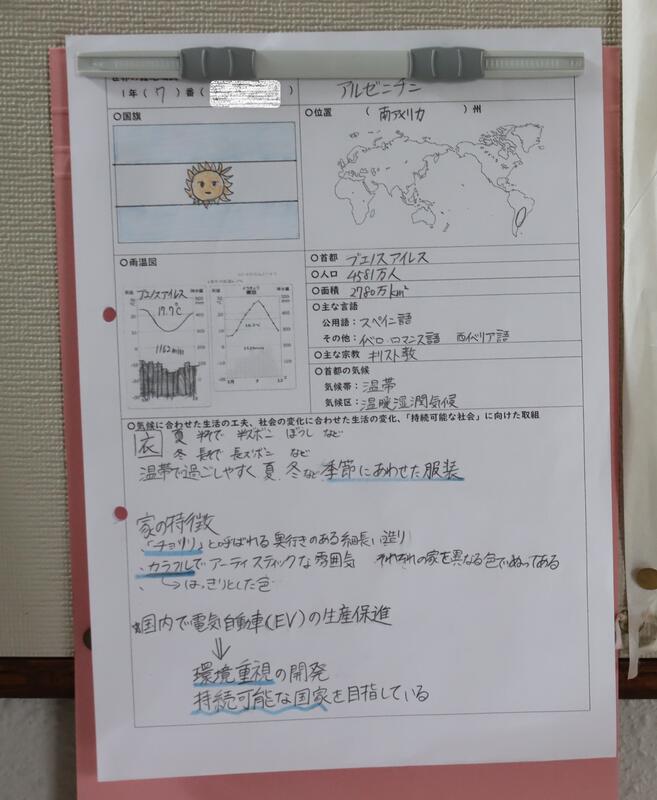 1年（ 7 ）番（ ）
アルゼンチン
○国旗
○位置 （ 南アメリカ ）州
○雨温図
ブエノスアイレス
17.7℃
1162mm
○首都 ブエノスアイレス
○人口 4581万人
○面積 2780万km²
○主な言語
公用語：スペイン語
その他：イベロ・ロマンス語 西イベリア語
○主な宗教 キリスト教
○首都の気候
気候帯：温帯
気候区：温暖湿潤気候
○気候に合わせた生活の工夫、社会の変化に合わせた生活の変化、「持続可能な社会」に向けた取組
衣 夏 半そで 半ズボン ぼうし など
冬 長そで 長ズボン など
温帯で過ごしやすく 夏、冬など季節にあわせた服装
家の特徴
・「チョリソ」と呼ばれる奥行きのある細長い造り
・カラフルでアーティスティックな雰囲気 それぞれの家を異なる色でぬってある
→はっきりとした色
国内で電気自動車(EV)の生産保進
環境重視の開発
持続可能な国家を目指している